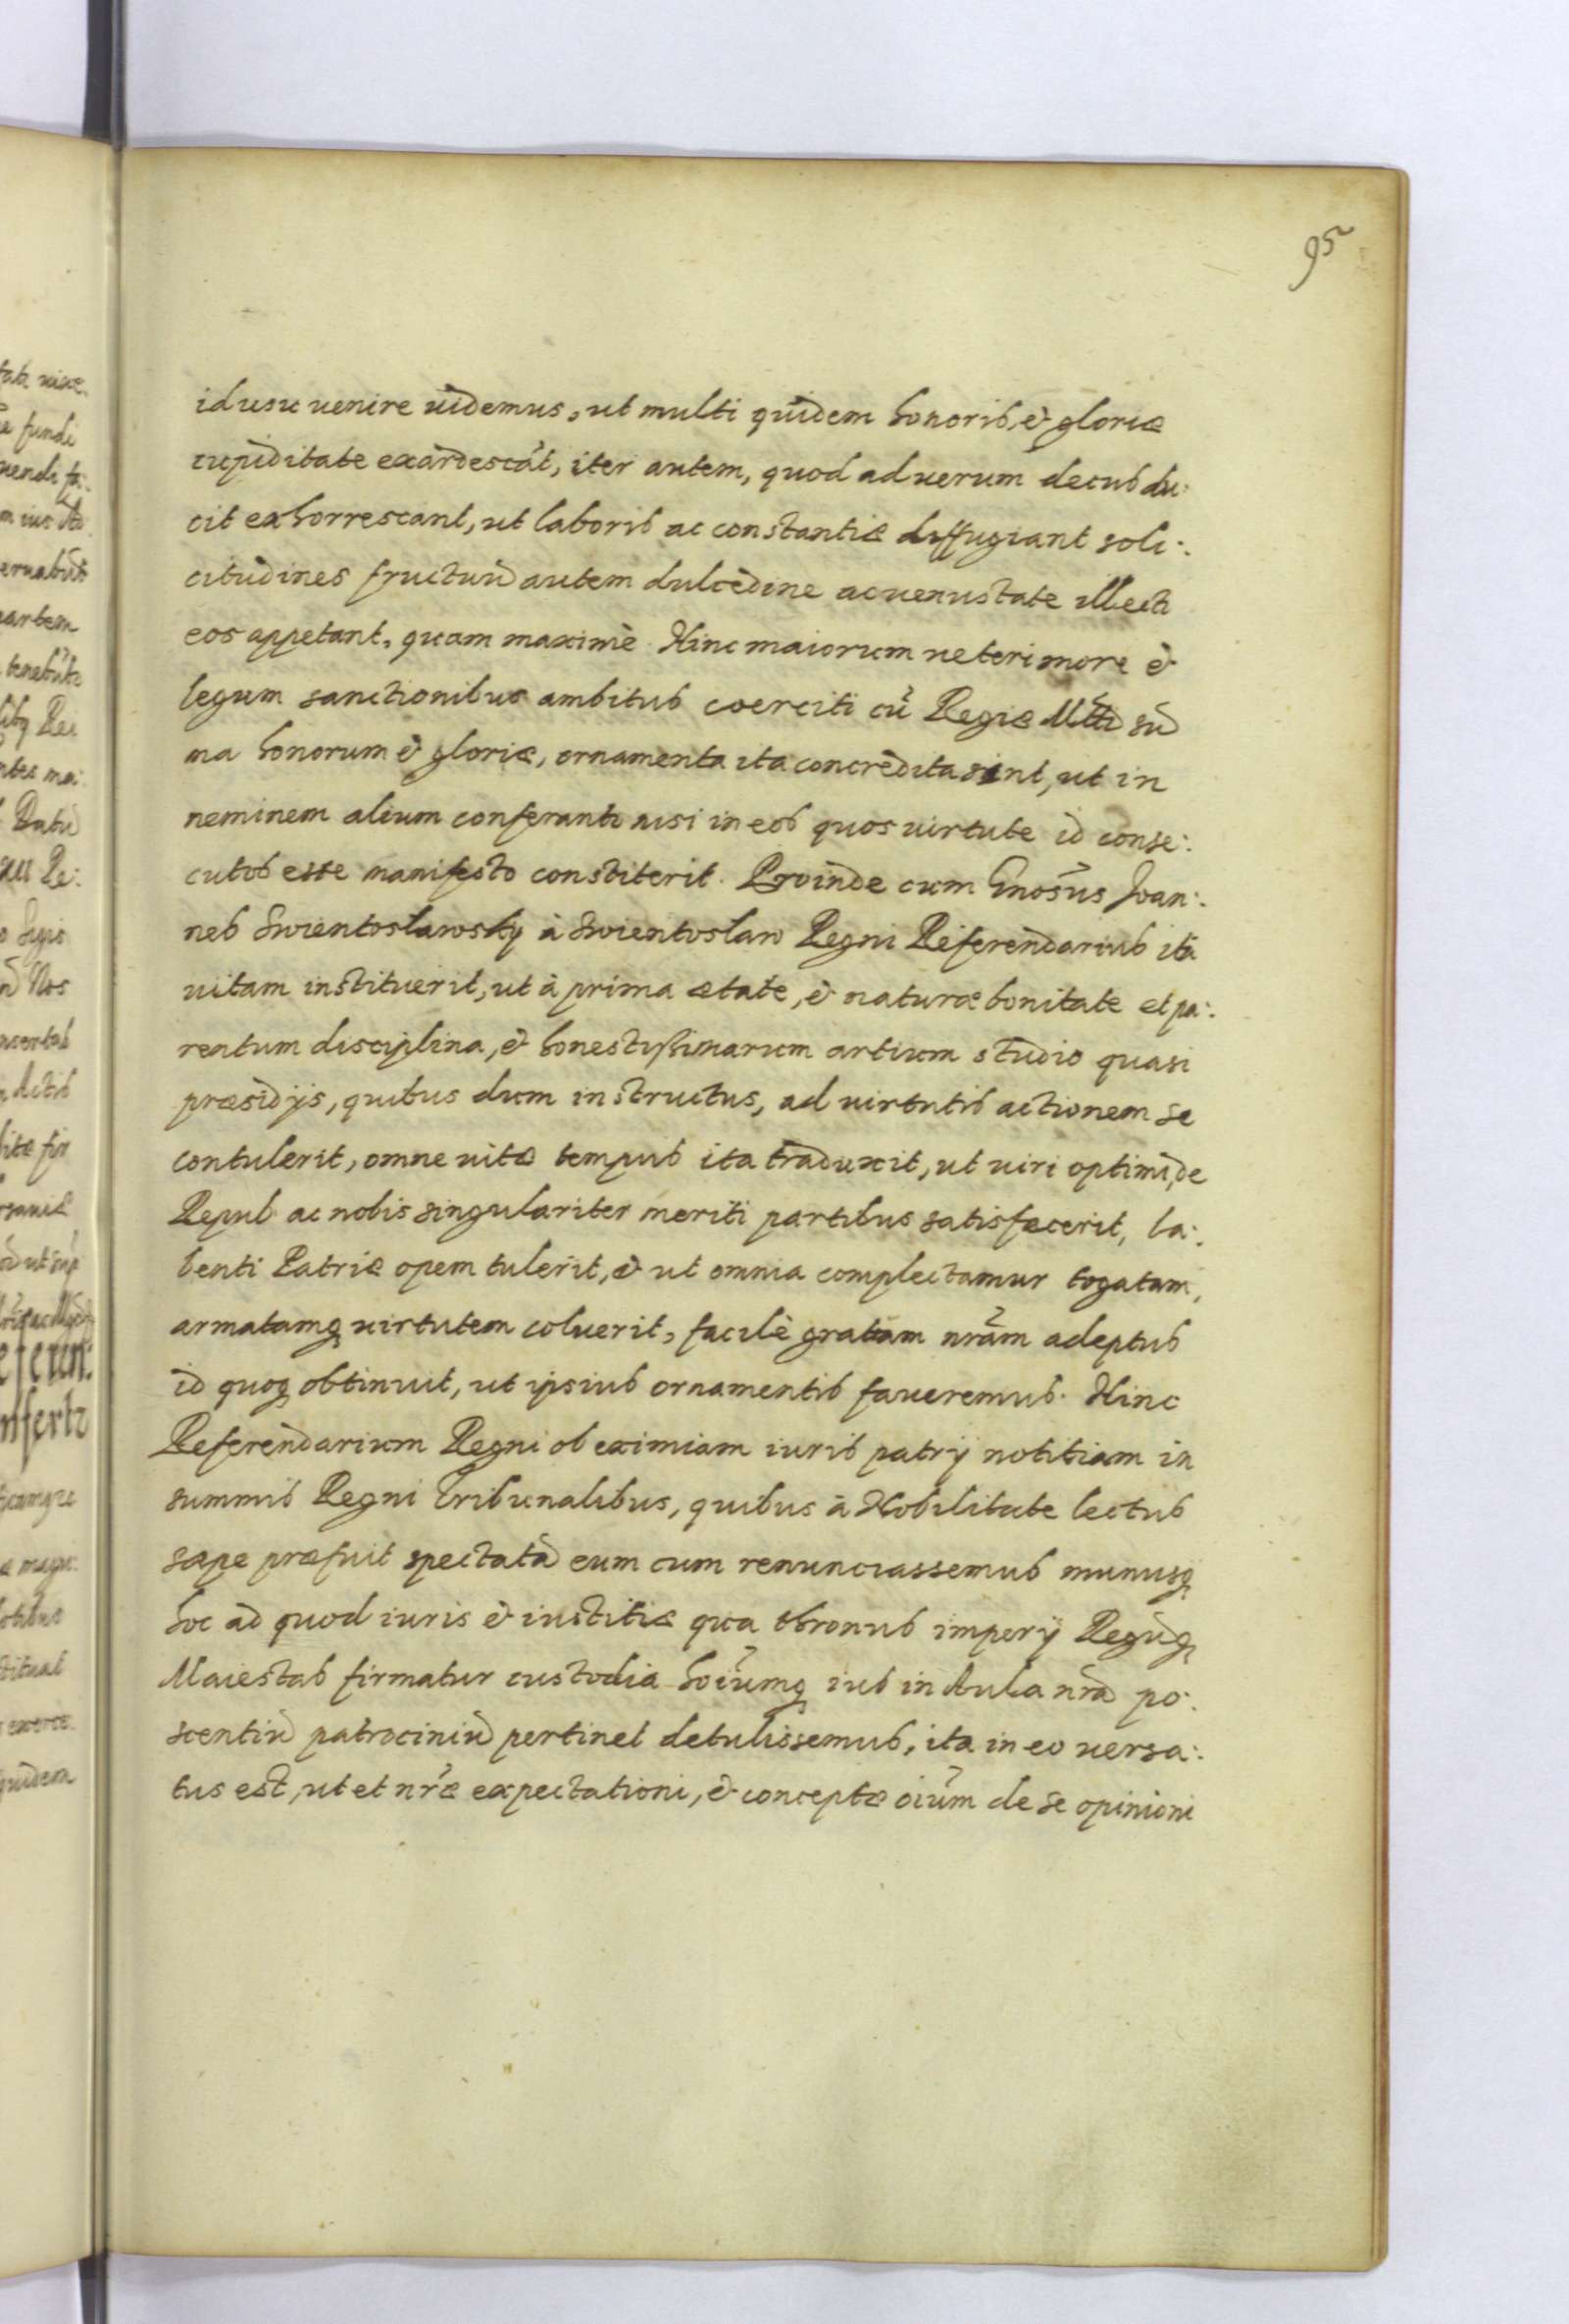 95
id usu uenire uidemus, ut multi quidem honoris, & gloriæ
cupiditate exardescāt, iter autem, quod ad uerum decus du:
cit exhorrescant, ut laboris ac constantiæ diffugiant soli:
citudines fructuū autem dulcedine ac uenustate illecti
eos appetant, quam maximè. Hinc maiorum ueteri more &
legum sanctionibus ambitus coerciti cū Regiæ Mtti sū
ma honorum & gloriæ, ornamenta ita concredita sint, ut in
neminem alium conferantr nisi in eos quos uirtute id conse:
cutos esse manifesto constiterit. Proinde cum Gnosus Joan:
nes Swientoslawsky à Swientoslaw Regni Referendarius ita
uitam instituerit, ut à prima ætate, & naturæ bonitate et pa:
rentum disciplina, & honestissimarum artium studio quasi
præsidijs, quibus dum instructus, ad uirtutis actionem se
contulerit, omne uitæ tempus ita traduxit, ut uiri optimi, de
Repub. ac nobis singulariter meriti partibus satisfecerit, la:
benti Patriæ opem tulerit, & ut omnia complectamur togatam,
armatamq uirtutem coluerit, facilè gratiam nrām adeptus
id quoq obtinuit, ut ipsius ornamentis faueremus. Hinc
Referendarium Regni ob eximiam iuris patrij notitiam in
summis Regni Tribunalibus, quibus à Nobilitate lectus
sæpe præfuit spectatā eum cum renunciassemus munusq
hoc ad quod iuris & iustitiæ qua thronus imperij Regūq
Maiestas firmatur custodia hoiūmq ius in Aula nrā po:
scentiū patrociniū pertinet detulissemus, ita in eo uersa:
tus est, ut et nrǣ expectationi, & conceptæ oiūm de se opinioni